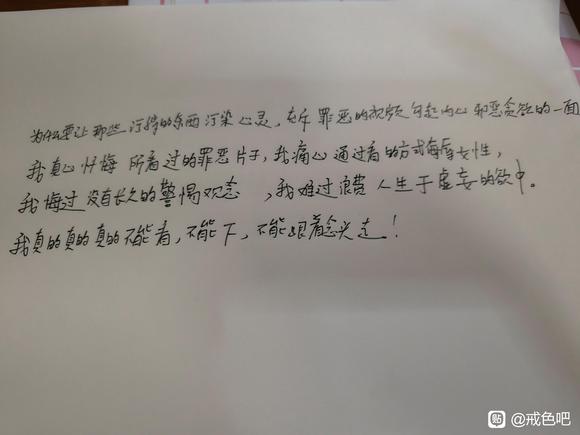 为什么要让那些污秽的东西污染心灵，充斥罪恶的视频勾起内心邪恶贪欲的一面
我真心忏悔 所看过的罪恶片子，我痛心通过看的方式侮辱女性，
我悔过 没有长久的警惕观念，我难过浪费人生于虚妄的欲中。
我真的真的真的不能看，不能下，不能跟着念头走！
贴 @戒色吧